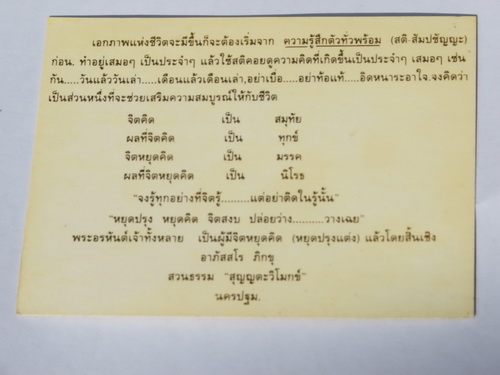 เอกภาพแห่งชีวิตจะมีขึ้นก็จะต้องเริ่มจาก ความรู้สึกตัวทั่วพร้อม (สติ-สัมปชัญญะ)
ก่อน. ทำอยู่เสมอๆ เป็นประจำๆ แล้วใช้สติคอยดูความคิดที่เกิดขึ้นเป็นประจำๆ เสมอๆ เช่น
กัน.....วันแล้ววันเล่า.....เดือนแล้วเดือนเล่า,อย่าเบื่อ.....อย่าท้อแท้.....อิดหนาระอาใจ.จงคิดว่า
เป็นส่วนหนึ่งที่จะช่วยเสริมความสมบูรณ์ให้กับชีวิต
จิตคิด เป็น สมุทัย
ผลที่จิตคิด เป็น ทุกข์
จิตหยุดคิด เป็น มรรค
ผลที่จิตหยุดคิด เป็น นิโรธ
"จงรู้ทุกอย่างที่จิตรู้.........แต่อย่าติดในรู้นั้น"
"หยุดปรุง หยุดคิด จิตสงบ ปล่อยว่าง..........วางเฉย"
พระอรหันต์เจ้าทั้งหลาย เป็นผู้มีจิตหยุดคิด (หยุดปรุงแต่ง) แล้วโดยสิ้นเชิง
อาภัสสโร ภิกขุ
สวนธรรม "สุญญตะวิโมกข์"
นครปฐม.